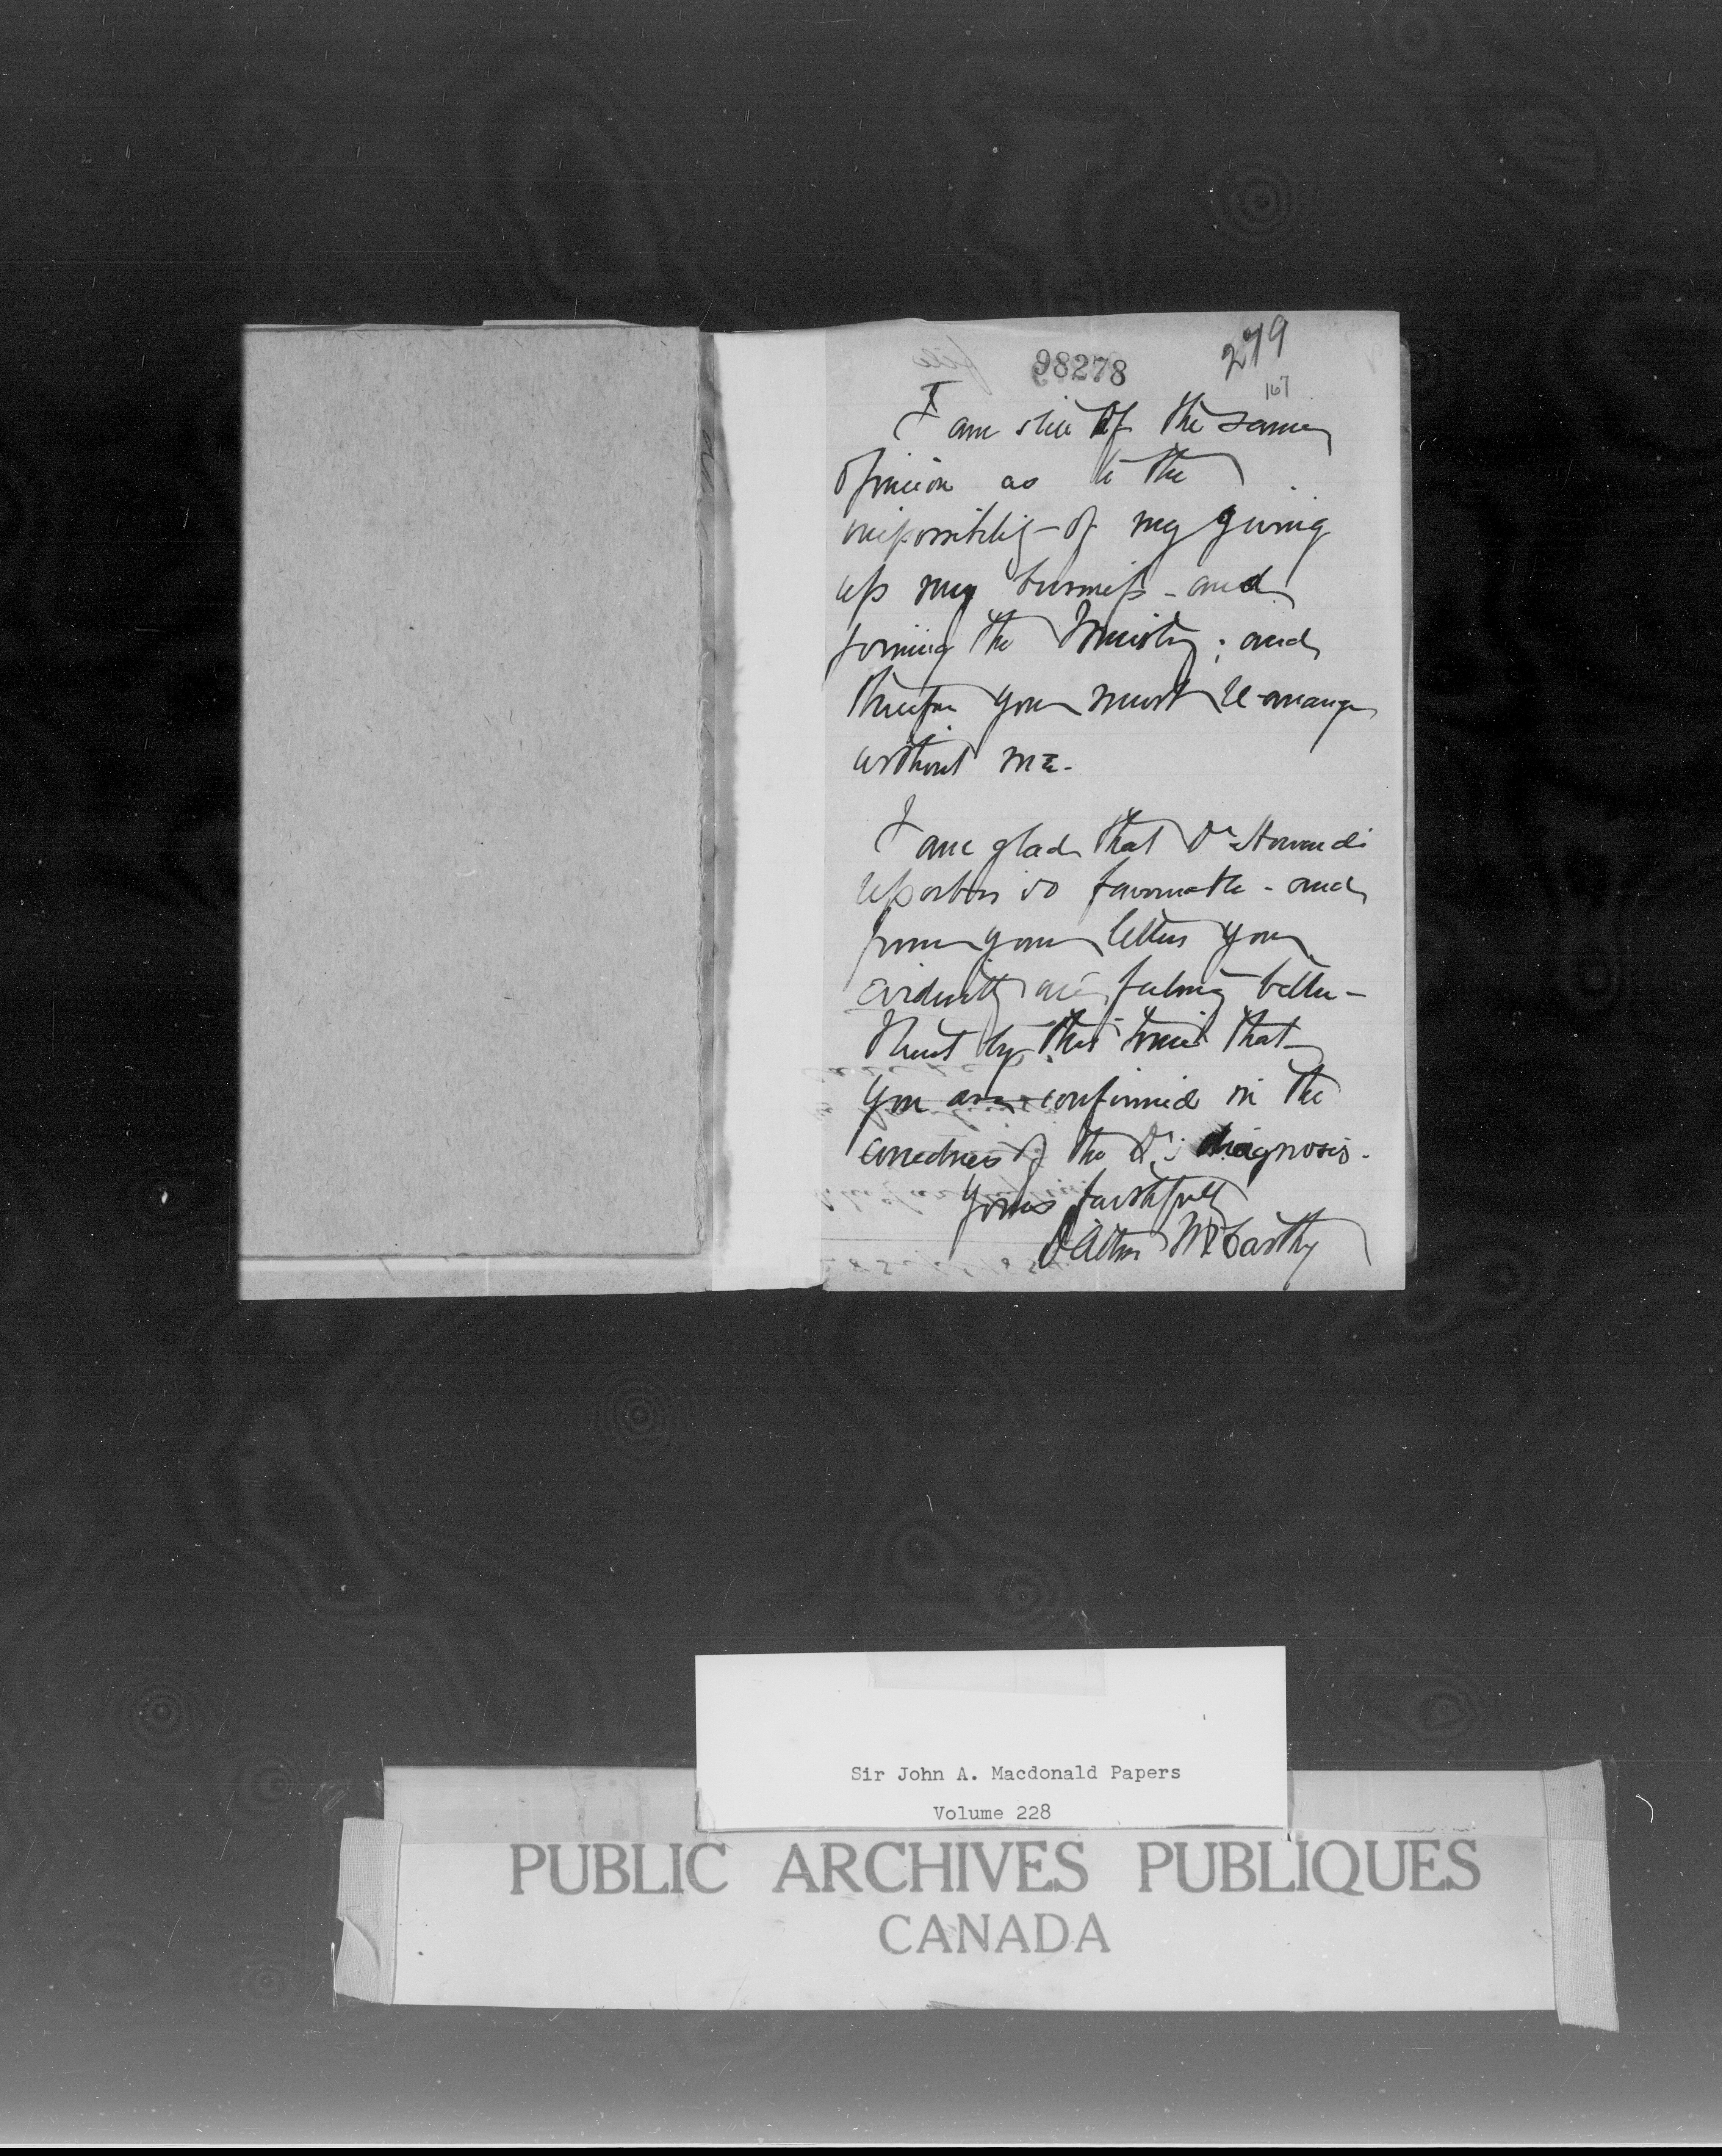 98278
279
167
I am still of the same
opinion as to the
impossibility of my giving
up my business - and
joining the Ministry; and
therefore you must re-arrange
without me.
I am glad that Dr Howard's
report is so favourable - and
from your letter you
evidently are feeling better -
trust by this time that
you are confirmed in the
correctness of the Dr's diagnosis.
Yours faithfully
Dalton McCarthy
Sir John A. Macdonald Papers
Volume 228
PUBLIC ARCHIVES PUBLIQUES
CANADA